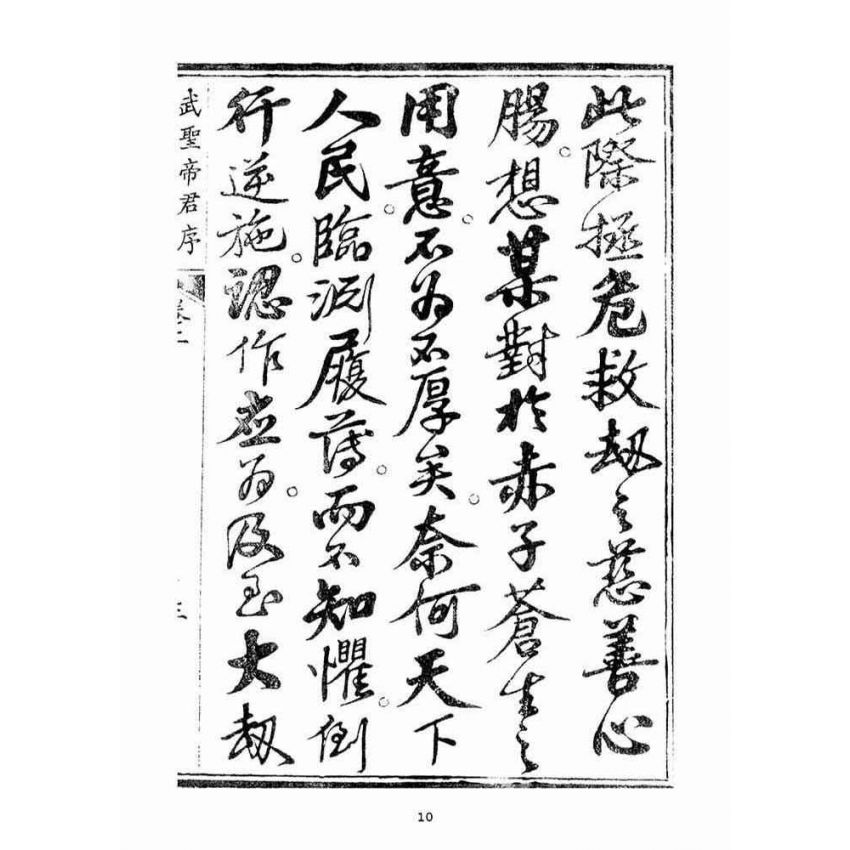 此際拯危救劫之慈善心
腸。想某對於赤子蒼生之
用意。不為不厚矣。奈何天下
人民臨渊履薄。而不知懼。倒
行逆施。認作應為。及至大劫
武聖帝君序
卷二
三
10